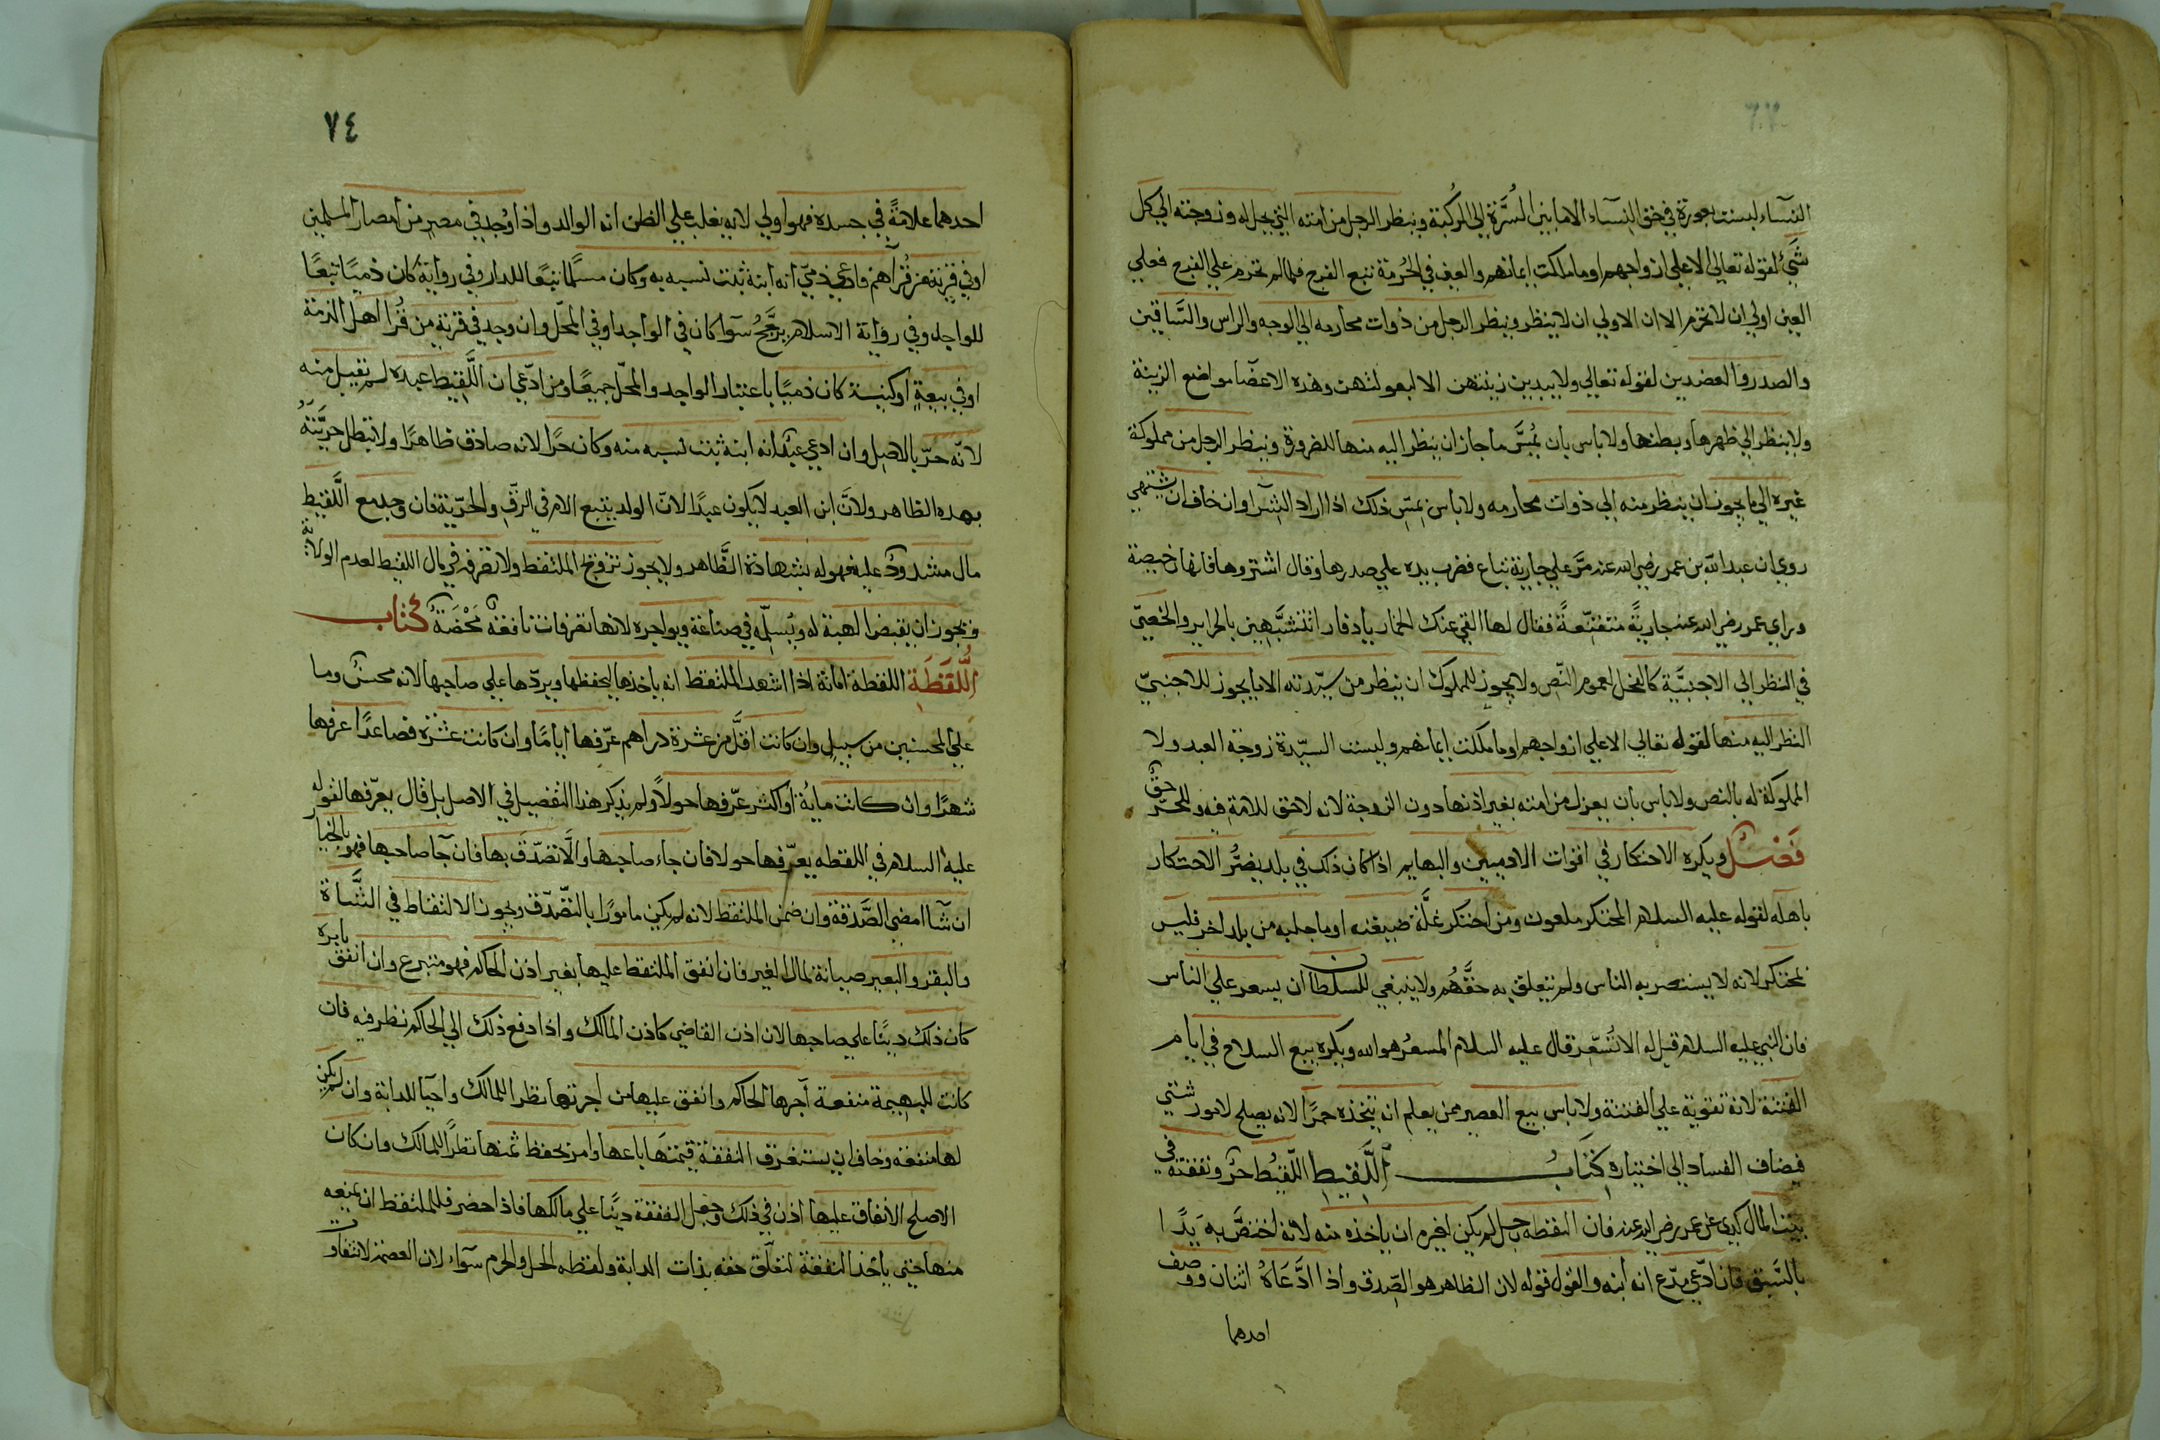 النساء ليست بعورة في حق النساء الا ما بين السرة الي الركبة وينظر الرجل من امته التي يحل له وزوجته الي كل
شيء لقوله تعالي الا علي ازواجهم او ما ملكت ايمانهم والعين في الحرمة تتبع الفرج فلما لم تحرم علي الفرج فعلي
العين اولي ان لا تحرم الا ان الاولي ان لا ينظر وينظر الرجل من ذوات محارمه الي الوجه والراس والساقين
والصدر والعضدين لقوله تعالي ولا يبدين زينتهن الا لبعولتهن وهذه الاعضا مواضع الزينة
ولا ينظر الي ظهرها وبطنها ولا باس بان يمس ما جاز ان ينظر اليه منها للضرورة وينظر الرجل من مملوكة
غيره الي ما يجوز ان ينظر منه الي ذوات محارمه ولا باس بمس ذلك اذا اراد الشرا وان خاف ان يشتهي
روي ان عبد الله بن عمر رضي الله عنه مر علي جارية تباع فضرب بيده علي صدرها وقال اشتروها فانها رخيصة
وراي عمر رضي الله عنه جارية متقنعة فقال لها القي عنك الخمار يا دفار اتتشبهين بالحراير والخصي
في النظر الي الاجنبية كالفحل لعموم النص ولا يجوز للمملوك ان ينظر من سيدته الا ما يجوز للاجنبي
النظر اليه منها لقوله تعالي الا علي ازواجهم او ما ملكت ايمانهم وليست السيدة زوجة العبد ولا
المملوكة له بالنص ولا باس بان يعزل من امته بغير اذنها دون الزوجة لانه لا حق للامة فيه وللحر حق
فصل ويكره الاحتكار في اقوات الادميين والبهايم اذا كان ذلك في بلد يضر الاحتكار
باهله لقوله عليه السلام المحتكر ملعون ومن احتكر غلة ضيعته او ما جلبه من بلد اخر فليس
بمحتكر لانه لا يستضر به الناس ولم يتعلق به حقهم ولا ينبغي للسلطان ان يسعر علي الناس
فان النبي عليه السلام قيل له الا تسعر قال عليه السلام المسعر هو الله ويكره بيع السلاح في ايام
الفتنة لانه تقوية علي الفتنة ولا باس ببيع العصير ممن يعلم انه يتخذه خمرا لانه يصلح لامور شتي
فيضاف الفساد الي اختياره كتاب اللقيط اللقيط حر ونفقته في
بيت المال كذي عن عمر رضي الله عنه فان التقطه رجل لم يكن لغيره ان ياخذه منه لانه اختص به يدا
بالسبق فان ادعي مدع انه ابنه والقول قوله لان الظاهر هو الصدق واذا ادعاه اثنان ووصف
احدهما
٧٤
احدهما علامة في جسده فهو اولي لانه يغلب علي الظن انه الوالد واذا وجد في مصر من امصار المسلمين
او في قرية من قراهم فادعي ذمي انه ابنه ثبت نسبه به وكان مسلما تبعا للدار وفي رواية كان ذميا تبعا
للواجد وفي رواية الاسلام يرجح سوا كان في الواجد او في المحل وان وجد في قرية من قرا اهل الذمة
او في بيعة او كنيسة كان ذميا باعتبار الواجد والمحل جميعا ومن ادعي ان اللقيط عبده لم يقبل منه
لانه حر بالاصل وان ادعي عبد انه ابنه ثبت نسبه منه وكان حرا لانه صادق ظاهرا ولا تبطل حريته
بهذه الظاهر ولان ابن العبد لا يكون عبدا لان الولد يتبع الام في الرق والحرية فان وجد مع اللقيط
مال مشدود عليه فهو له بشهادة الظاهر ولا يجوز تزويج الملتقط ولا تصرفه في مال اللقيط لعدم الولاية
ويجوز ان يقبض الهبة له ويسلمه في صناعة ويواجره لانها تصرفات نافعة محضة كتاب
اللقطة اللقطة امانة اذا اشهد الملتقط انه ياخذها ليحفظها ويردها علي صاحبها لانه محسن وما
علي المحسنين من سبيل وان كانت اقل من عشرة دراهم عرفها اياما وان كانت عشرة فصاعدا عرفها
شهرا وان كانت ماية او اكثر عرفها حولا ولم يذكر هذا التفصيل في الاصل بل قال يعرفها لقوله
عليه السلام في اللقطه يعرفها حولا فان جاء صاحبها والا تصدق بها فان جآ صاحبها فهو بالخيار
ان شآ امضي الصدقة وان ضمن الملتقط لانه لم يكن مامورا بالتصدق ويجوز الالتقاط في الشاة
والبقر والبعير صيانة لمال الغير فان انفق الملتقط عليها بغير اذن الحاكم فهو متبرع وان انفق بامره
كان ذلك دينا علي صاحبها لان اذن القاضي كاذن المالك واذا دفع ذلك الي الحاكم نظر فيه فان
كانت للبهيمة منفعة آجرها الحاكم وانفق عليها من اجرتها نظرا للمالك واحيآ للدابة وان لم يكن
لها منفعة وخاف ان يستغرق النفقة قيمتها باعها وامر بحفظ ثمنها نظرا للمالك وان كان
الاصلح الانفاق عليها اذن في ذلك وجعل النفقة دينا علي مالكها فاذا حضر فللملتقط ان يمنعه
منها حتي ياخذ النفقة لتعلق حقه بذات الدابة ولقطه الحل والحرم سوآء لان العصمة لا تتفاوت